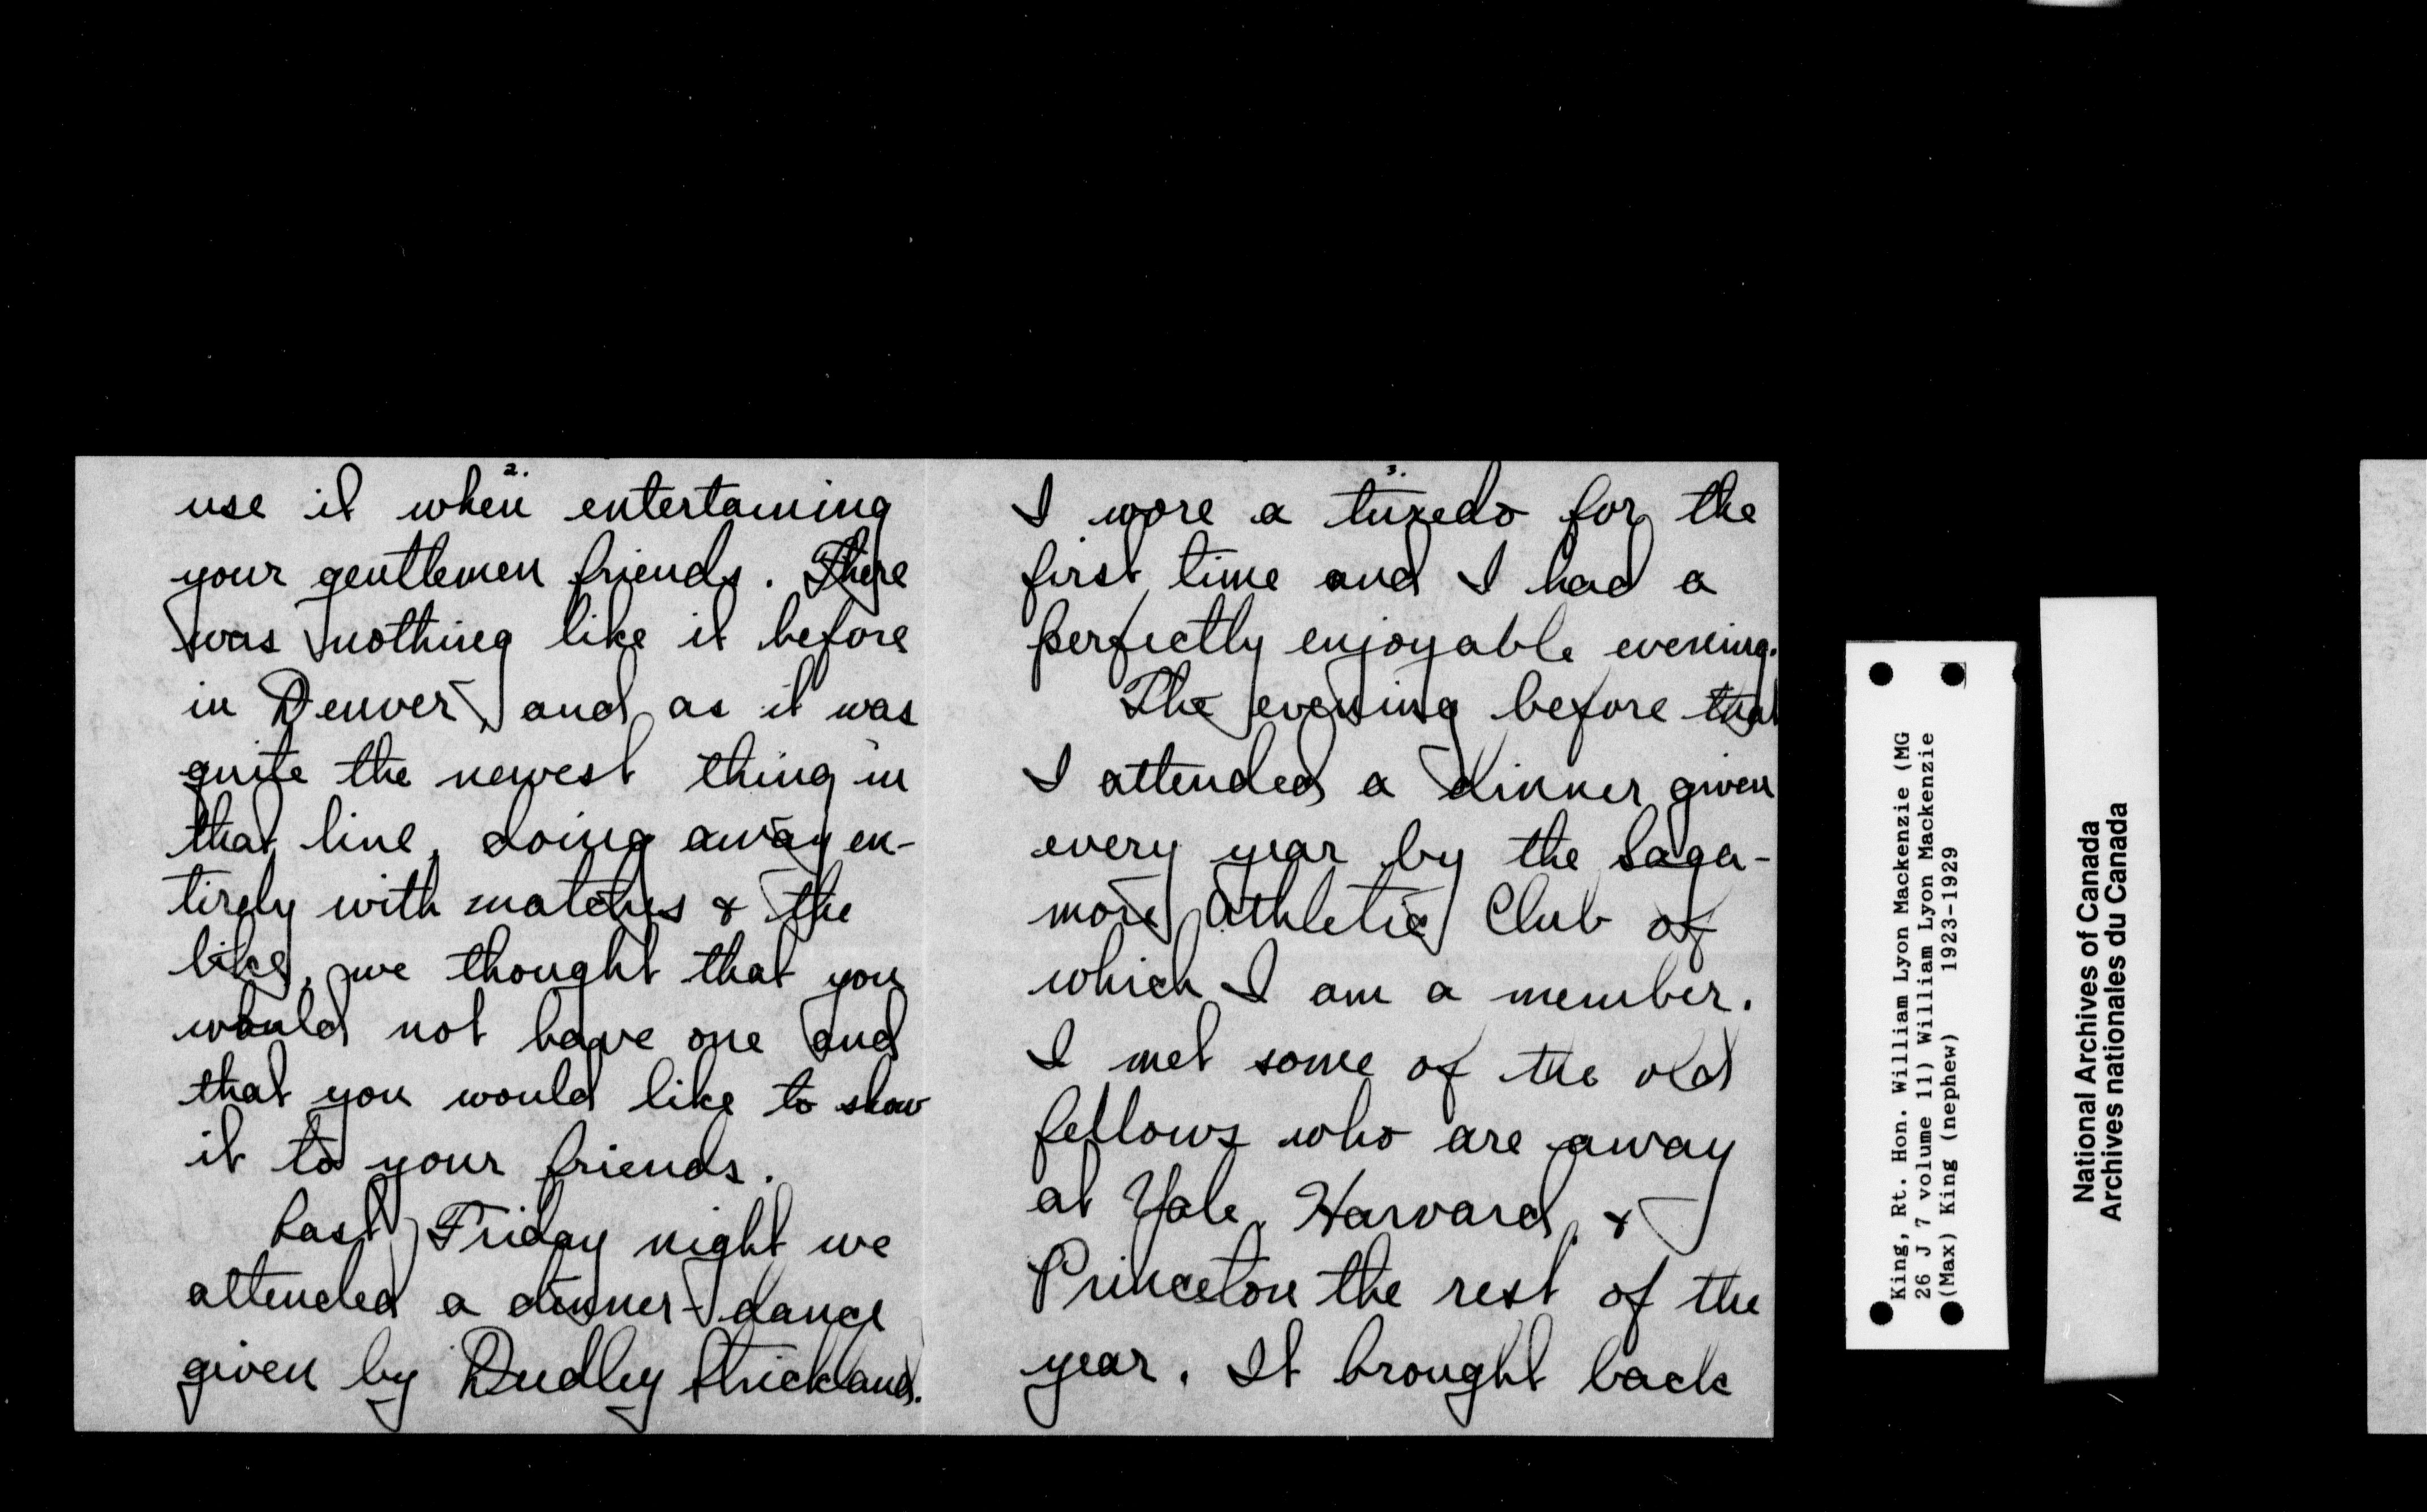 2.
use it when entertaining
your gentlemen friends. There
was nothing like it before
in Denver, and as it was
quite the newest thing in
that line, doing away en-
tirely with matches & the
like, we thought that you
would not have one and
that you would like to show
it to your friends.
Last Friday night we
attended a dinner-dance
given by Dudley Strickland.
3.
I wore a tuxedo for the
first time and I had a
perfectly enjoyable evening.
The evening before that
I attended a dinner given
every year by the Saga-
more Athletic Club of
which I am a member.
I met some of the old
fellows who are away
at Yale, Harvard, &
Princeton the rest of the
year. It brought back
King, Rt. Hon. William Lyon Mackenzie (MG
26 J 7 volume 11) William Lyon Mackenzie
(Max) King (nephew) 1923-1929
National Archives of Canada
Archives nationales du Canada